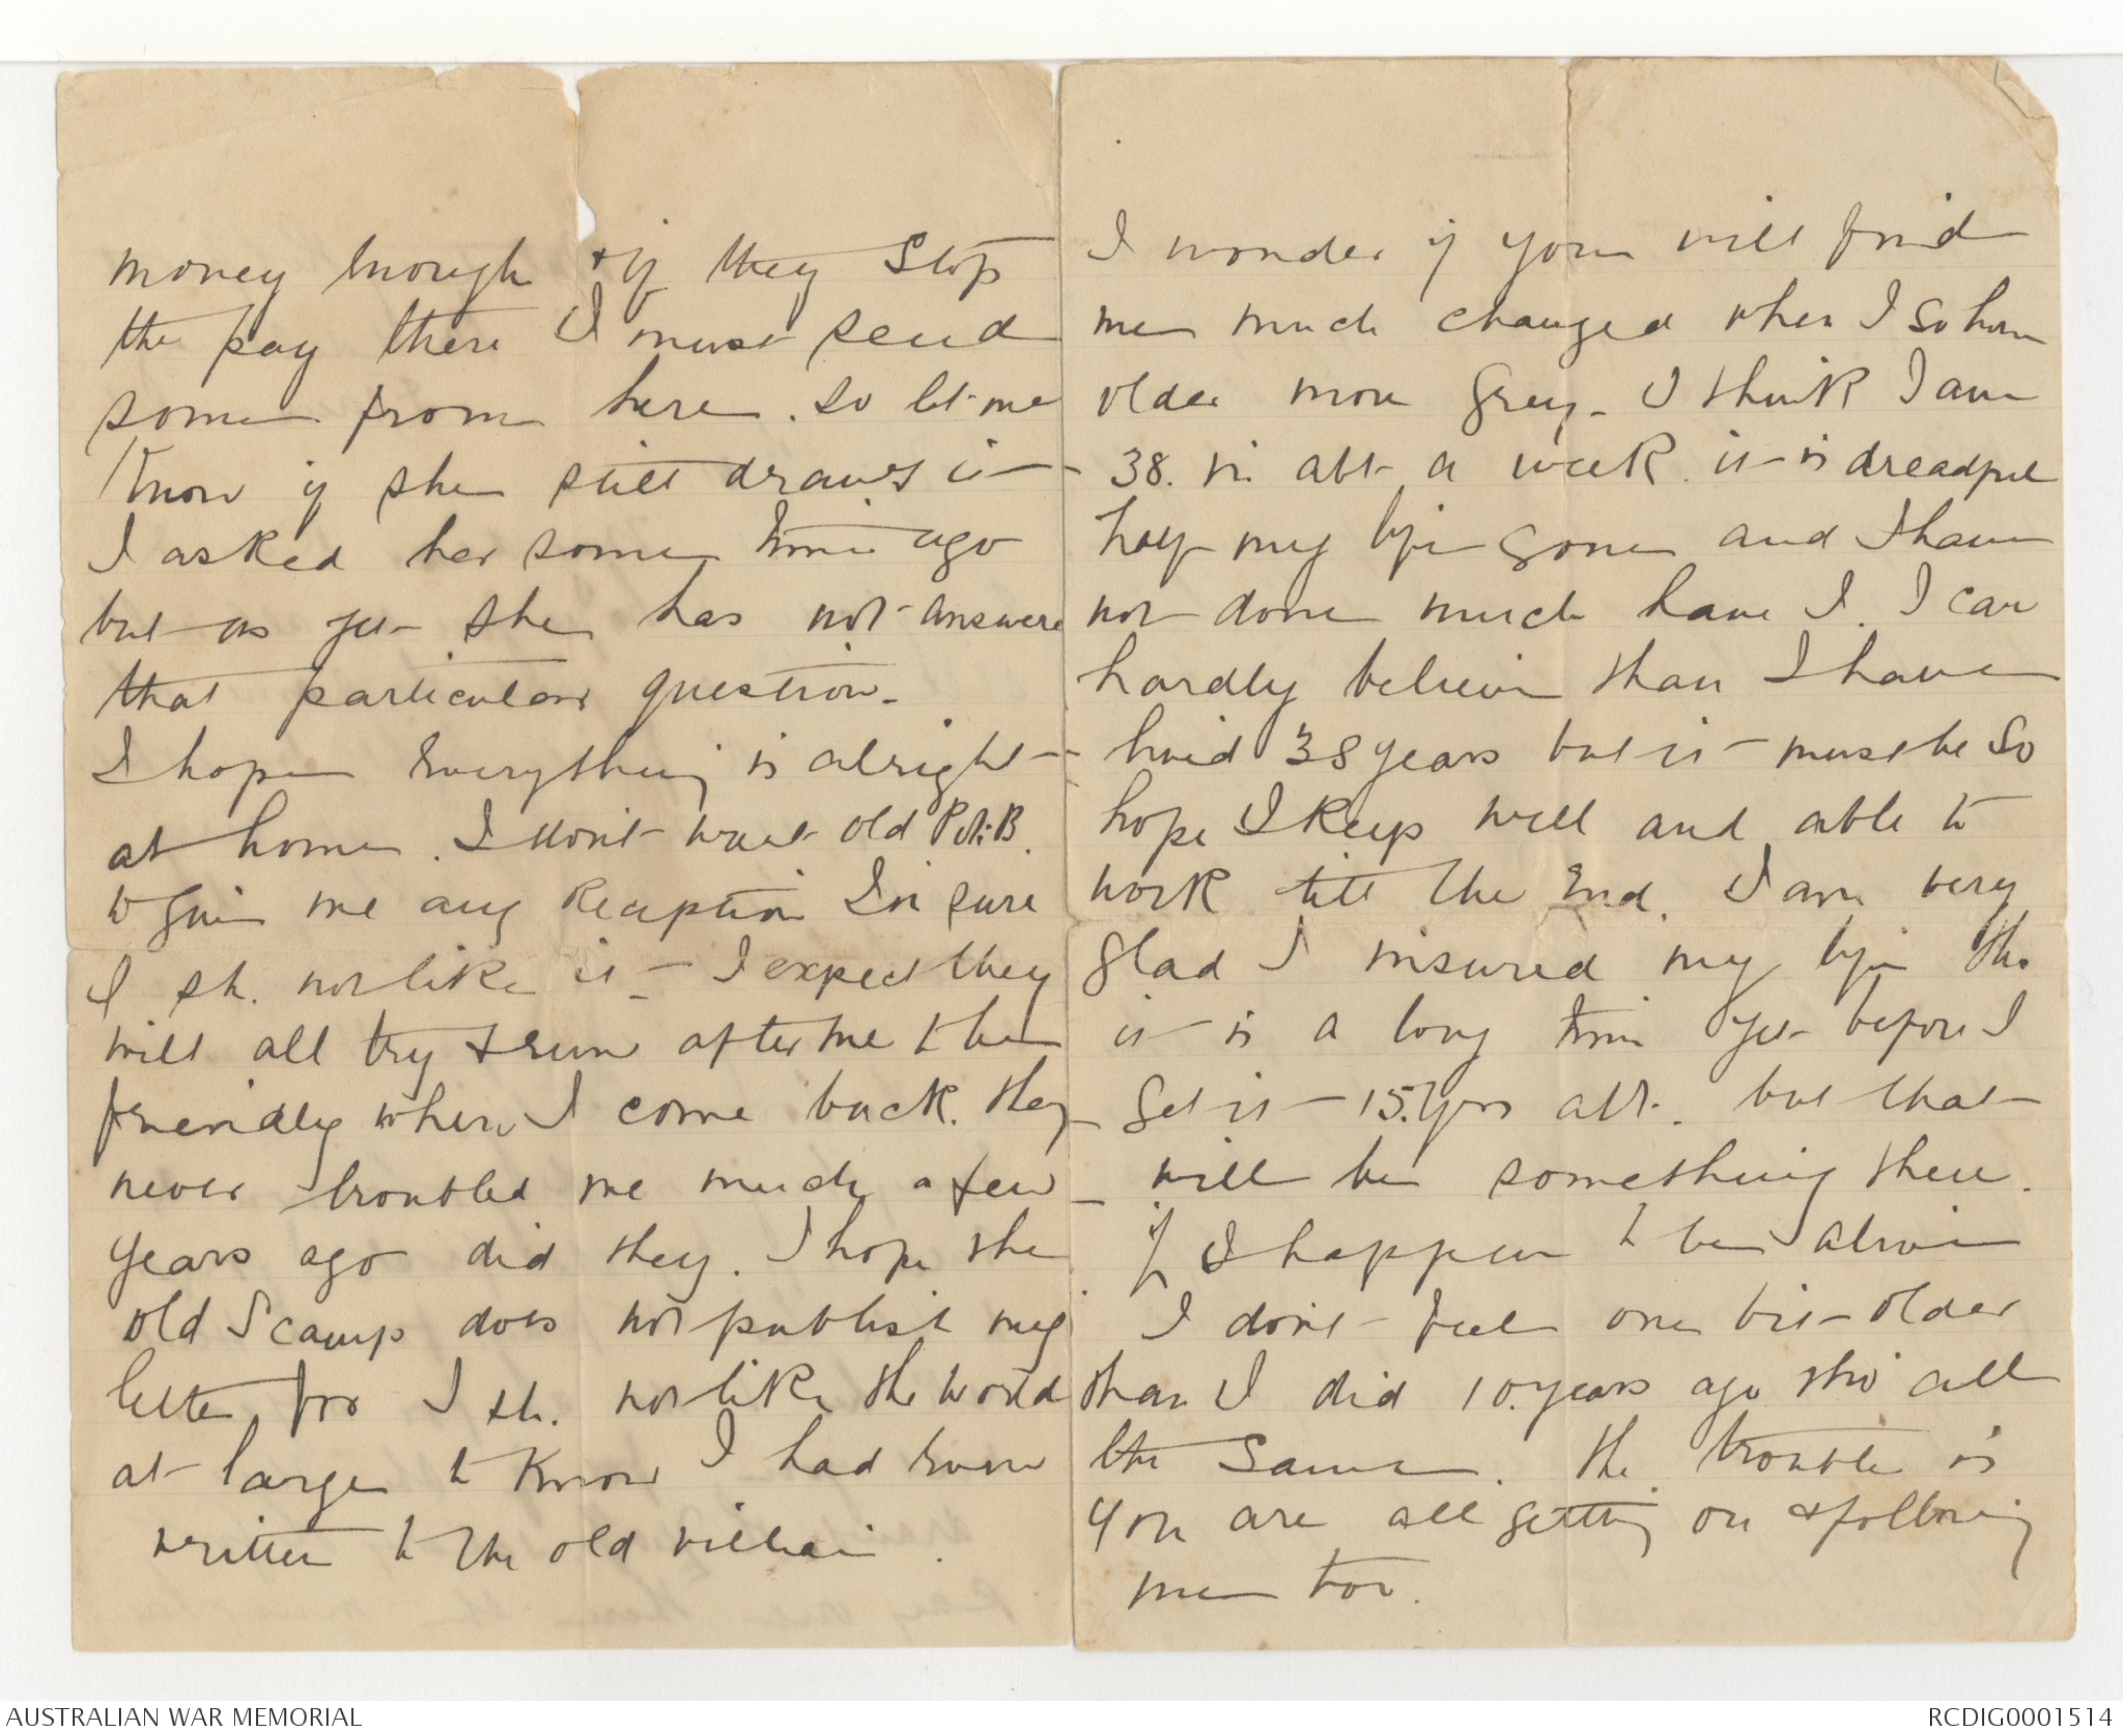 money enough & if they stop
the pay there I must send
some from here. so let me
Know if she still draws it
I asked her some time ago
but as yet she has not answere
that particular question.
I hope everything is alright
at home. I don't want old
to give me any Reception I'm sure
I sh. not like it - I expect they
will all try & run after me & be
friendly when I come back. they
never troubled me much a few
years ago did they. I hope the
old Scamp does not publish my
letter for I sh. not like the world
at large to Know I had even
written to the old villain.
I wonder if you will find
me much changed when I so home
older more grey - I think I am
38. in abt a week. it is dreadful
half my life gone and I have
not done much have I. I can
hardly believe that I have
lived 38 years but it must be so
hope I Keep well and able to
work till the End. I am very
glad I insured my life tho
it is a long time yet before I
get it - 15. yrs abt. but that
will be something then.
if I happen to be alive
I don't feel one bit older
than I did 10. years ago tho' all
the same. the trouble is
you are all getting on & following
me too.
AUSTRALIAN WAR MEMORIAL
RCDIG0001514